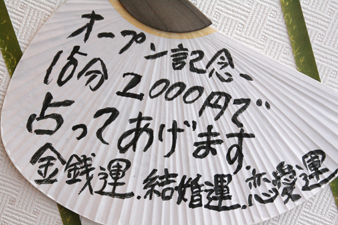 オープン記念、
15分 2000円で
占ってあげます
金銭運.結婚運.恋愛運